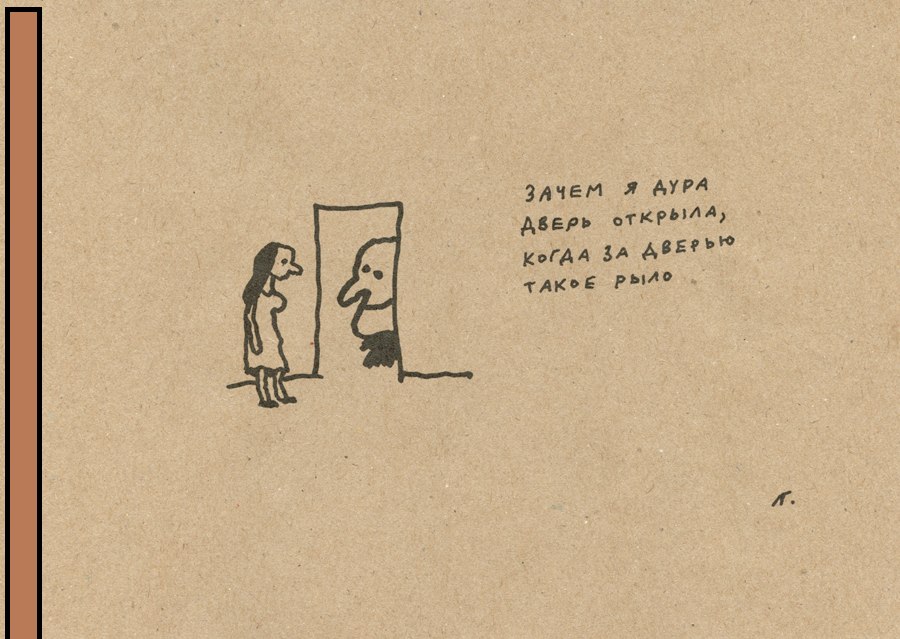 ЗАЧЕМ Я ДУРА
ДВЕРЬ ОТКРЫЛА,
КОГДА ЗА ДВЕРЬЮ
ТАКОЕ РЫЛО